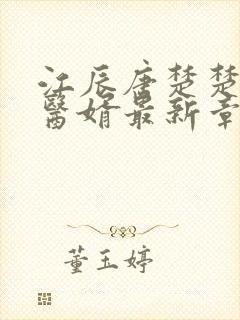 江辰唐楚楚
醫婿最新章
董玉婷